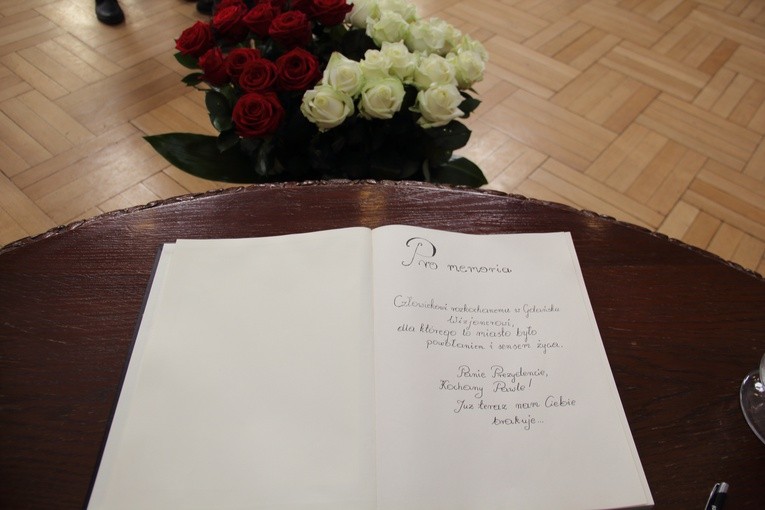 Pro memoria
Człowiekowi rozkochanemu w Gdańsku
Wizjonerowi,
dla którego to miasto było
powołaniem i sensem życia.
Panie Prezydencie,
Kochany Pawle!
Już teraz nam Ciebie
brakuje...